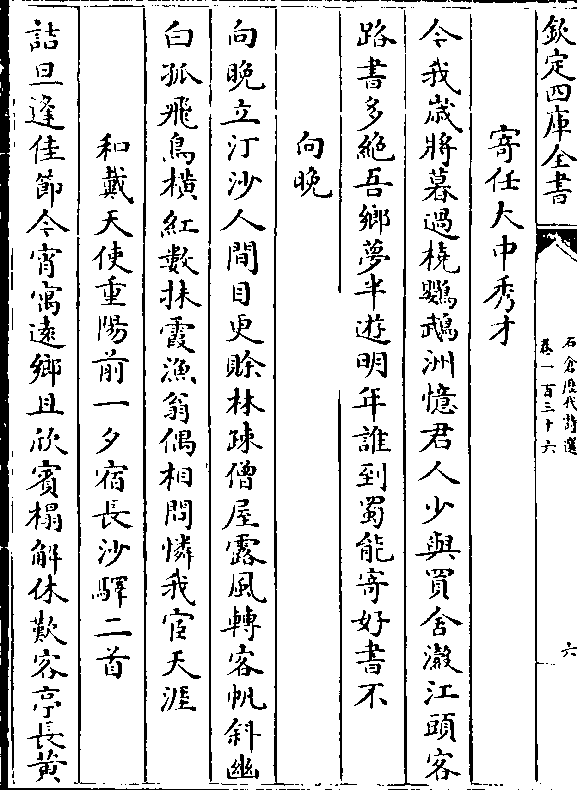 欽定四庫全書
石倉歷代詩選
卷一百三十六
六
寄任大中秀才
今我歲將暮過橈鸚鵡洲憶君人少與買舍瀫江頭客
路書多絕吾鄉夢半遊明年誰到蜀能寄好書不
向晚
向晚立汀沙人間目更賒林疎僧屋露風轉客帆斜幽
白孤飛鳥橫紅數抹霞漁翁偶相問憐我宦天涯
和戴天使重陽前一夕宿長沙驛二首
詰旦逢佳節今宵寓遠鄉且欣賓榻解休歎客亭長黃